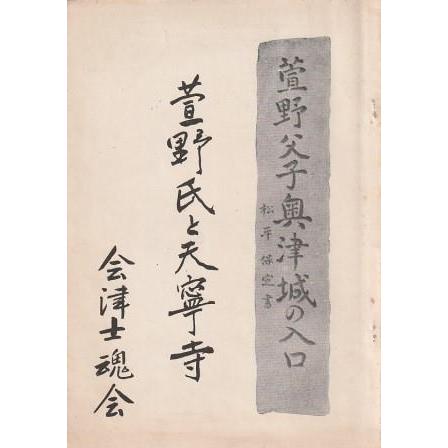 萱野父子奥津城の入口
松平保定書
萱野氏と天寧寺
会津士魂会